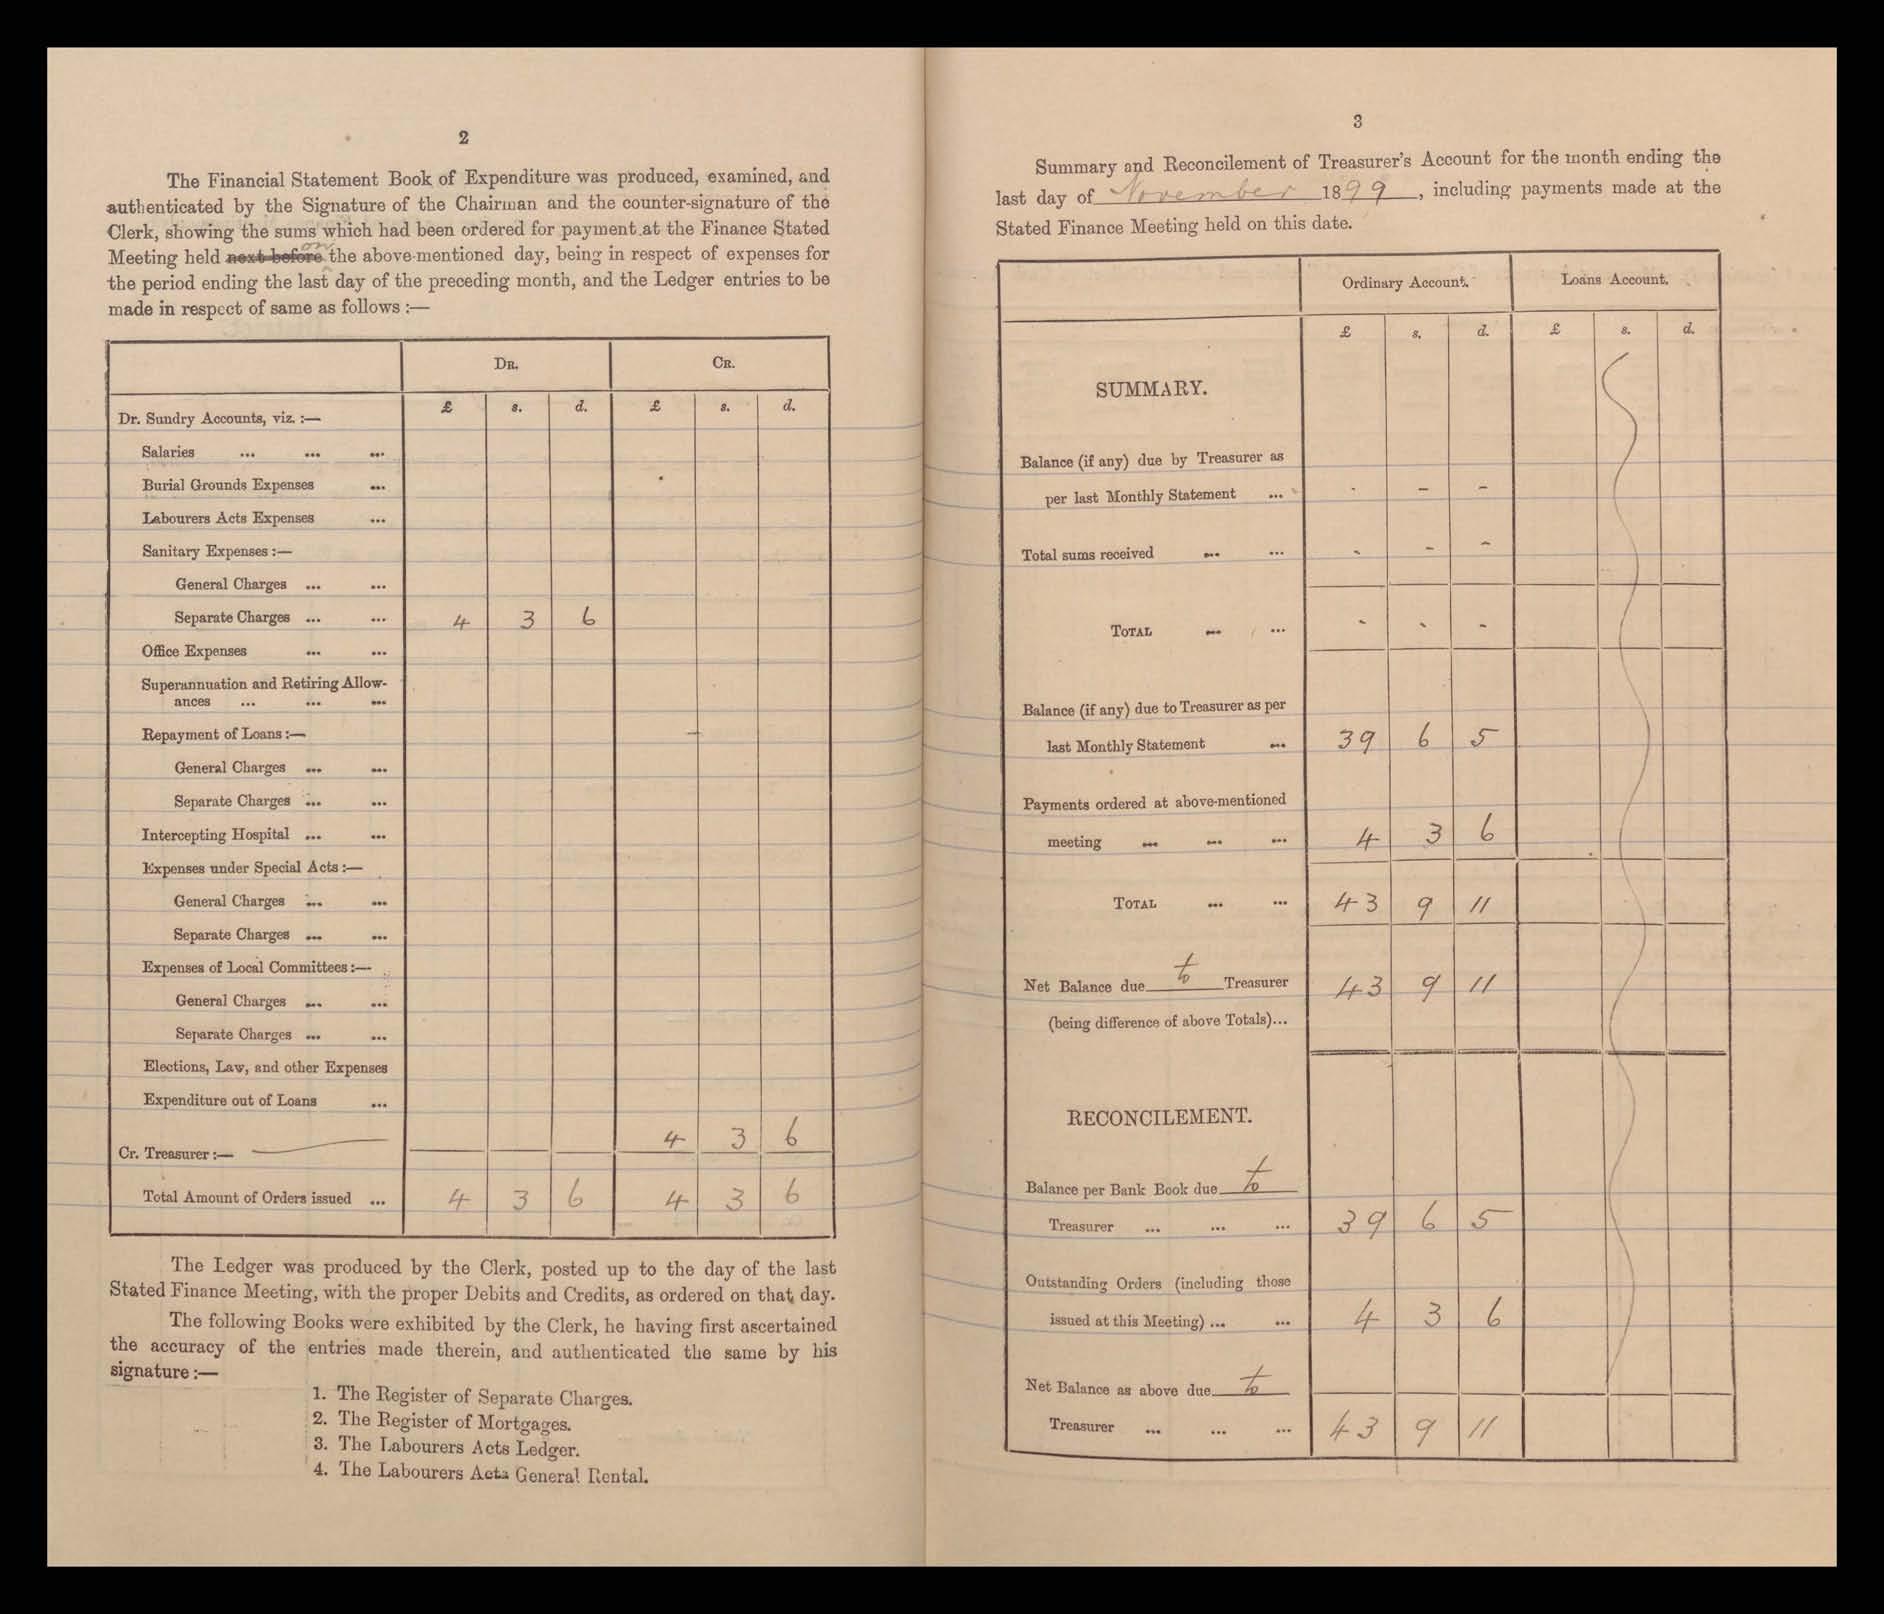 2
The Financial Statement Book of Expenditure was produced, examined, and
authenticated by the Signature of the Chairman and the counter-signature of the
Clerk, showing the sums which had been ordered for payment at the Finance Stated
Meeting held next before on the above-mentioned day, being in respect of expenses for
the period ending the last day of the preceding month, and the Ledger entries to be
made in respect of same as follows :—
DR. CR.
£ s. d. £ s. d.
Dr. Sundry Accounts, viz. :—
Salaries ... ... ...
Burial Grounds Expenses ...
Labourers Acts Expenses ...
Sanitary Expenses :—
General Charges ... ...
Separate Charges ... ... 4 3 6
Office Expenses ... ...
Superannuation and Retiring Allow-
ances ... ... ...
Repayment of Loans :—
General Charges ... ...
Separate Charges ... ...
Intercepting Hospital ... ...
Expenses under Special Acts :—
General Charges ... ...
Separate Charges ... ...
Expenses of Local Committees :—
General Charges ... ...
Separate Charges ... ...
Elections, Law, and other Expenses
Expenditure out of Loans ...
Cr. Treasurer :— 4 3 6
Total Amount of Orders issued ... 4 3 6 4 3 6
The Ledger was produced by the Clerk, posted up to the day of the last
Stated Finance Meeting, with the proper Debits and Credits, as ordered on that day.
The following Books were exhibited by the Clerk, he having first ascertained
the accuracy of the entries made therein, and authenticated the same by his
signature :—
1. The Register of Separate Charges.
2. The Register of Mortgages.
3. The Labourers Acts Ledger.
4. The Labourers Acts General Rental.
3
Summary and Reconcilement of Treasurer's Account for the month ending the
last day of November 1899, including payments made at the
Stated Finance Meeting held on this date.
Ordinary Account. Loans Account.
£ s. d. £ s. d.
SUMMARY.
Balance (if any) due by Treasurer as
per last Monthly Statement ... - - -
Total sums received ... ... - - -
TOTAL ... ... - - -
Balance (if any) due to Treasurer as per
last Monthly Statement ... 39 6 5
Payments ordered at above-mentioned
meeting ... ... ... 4 3 6
TOTAL ... ... 43 9 11
Net Balance due to Treasurer 43 9 11
(being difference of above Totals)...
RECONCILEMENT.
Balance per Bank Book due to
Treasurer ... ... ... 39 6 5
Outstanding Orders (including those
issued at this Meeting) ... ... 4 3 6
Net Balance as above due to
Treasurer ... ... ... 43 9 11